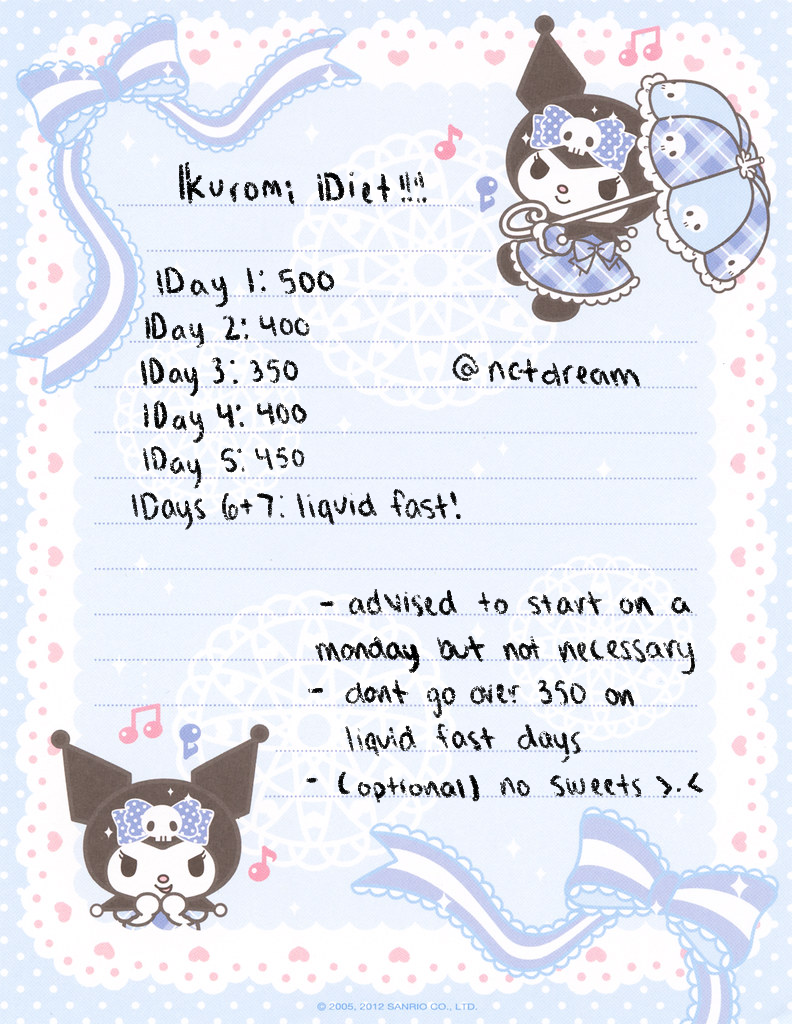 Kuromi Diet!!!!
Day 1: 500
Day 2: 400
Day 3: 350
@nctdream
Day 4: 400
Day 5: 450
Days 6+7: liquid fast!
- advised to start on a
monday but not necessary
- dont go over 350 on
liquid fast days
- (optional) no sweets >.<
© 2005, 2012 SANRIO CO., LTD.